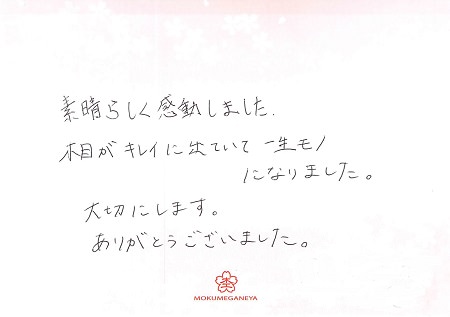 素晴らしく感動しました.
木目がキレイに出ていて一生モノ
になりました。
大切にします。
ありがとうございました。
MOKUMEGANEYA